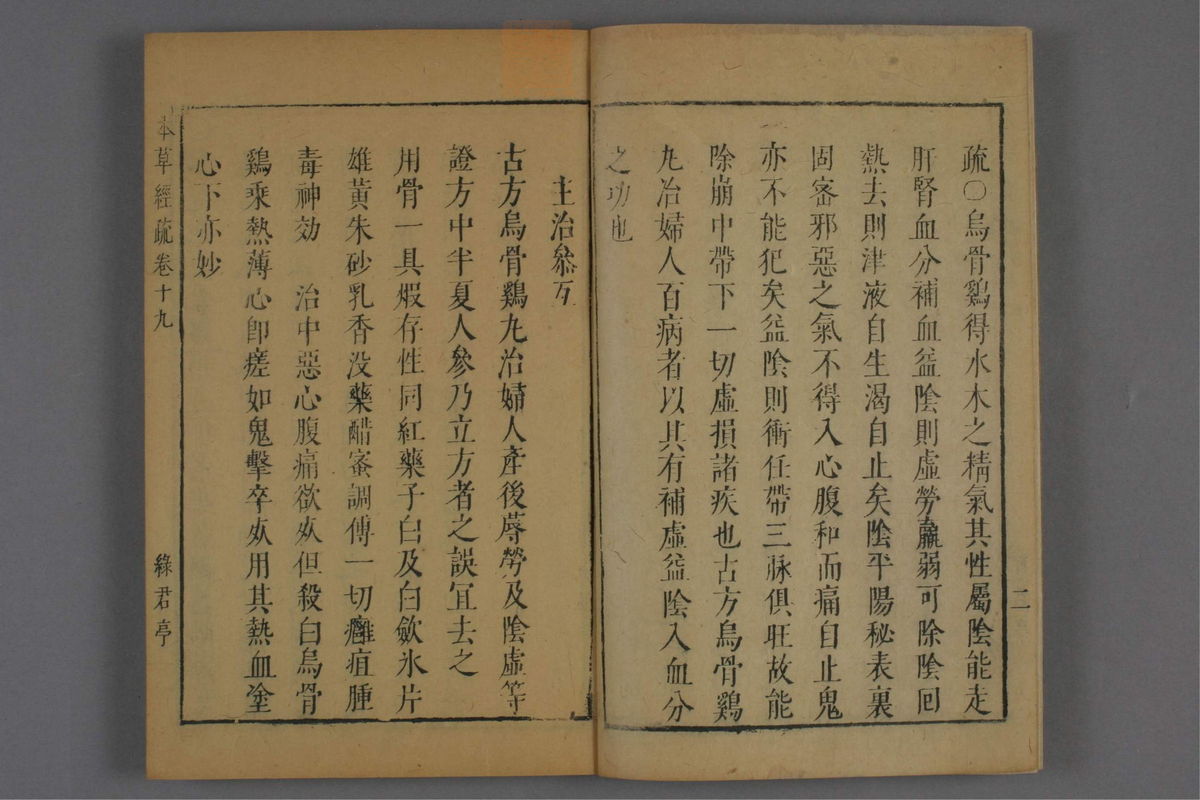 二
疏〇烏骨鷄得水木之精氣其性屬陰能走
肝腎血分補血益陰則虛勞羸弱可除陰回
熱去則津液自生渴自止矣陰平陽秘表裏
固密邪惡之氣不得入心腹和而痛自止鬼
亦不能犯矣益陰則衝任帶三脉俱旺故能
除崩中帶下一切虛損諸疾也古方烏骨鷄
丸治婦人百病者以其有補虛益陰入血分
之功也
主治叅互
古方烏骨鷄丸治婦人產後蓐勞及陰虛等
證方中半夏人參乃立方者之誤冝去之
用骨一具煆存性同紅藥子白及白歛氷片
雄黃朱砂乳香没藥醋蜜調傅一切癰疽腫
毒神効　治中惡心腹痛欲㱔但殺白烏骨
鷄乘熱薄心卽瘥如鬼擊卒㱔用其熱血塗
心下亦妙
本草經疏卷十九
綠君亭